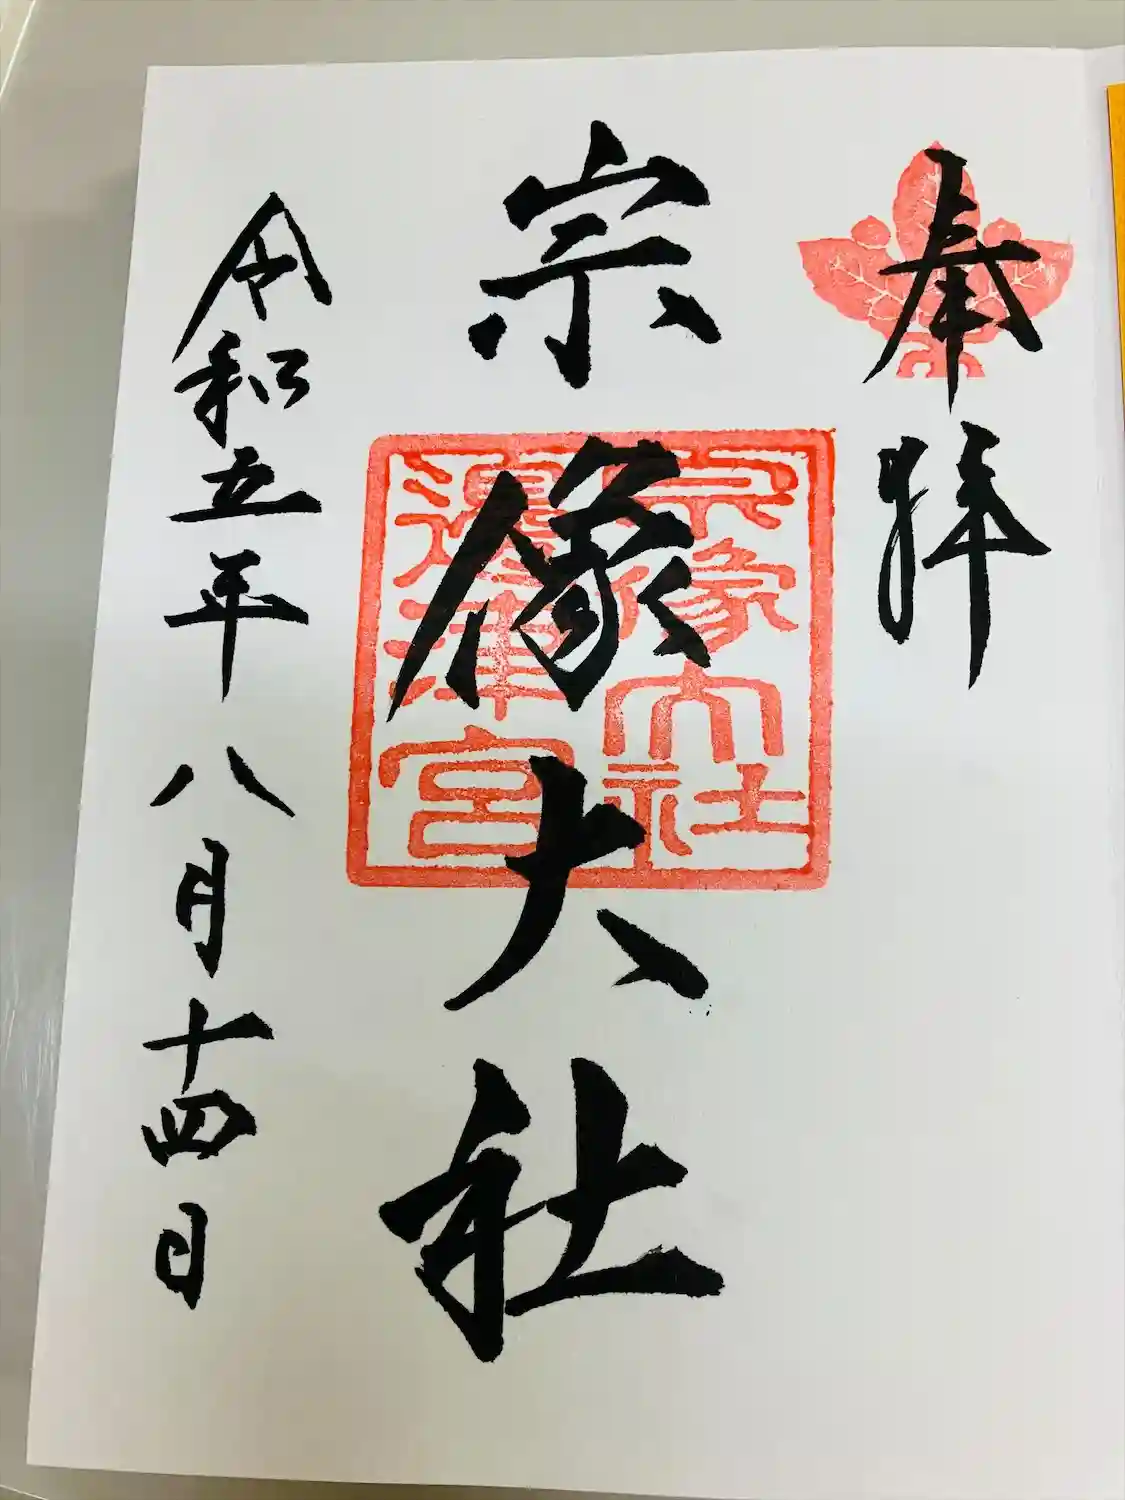 奉拝
宗像大社
宗像大社
邊津宮
令和五年八月十四日